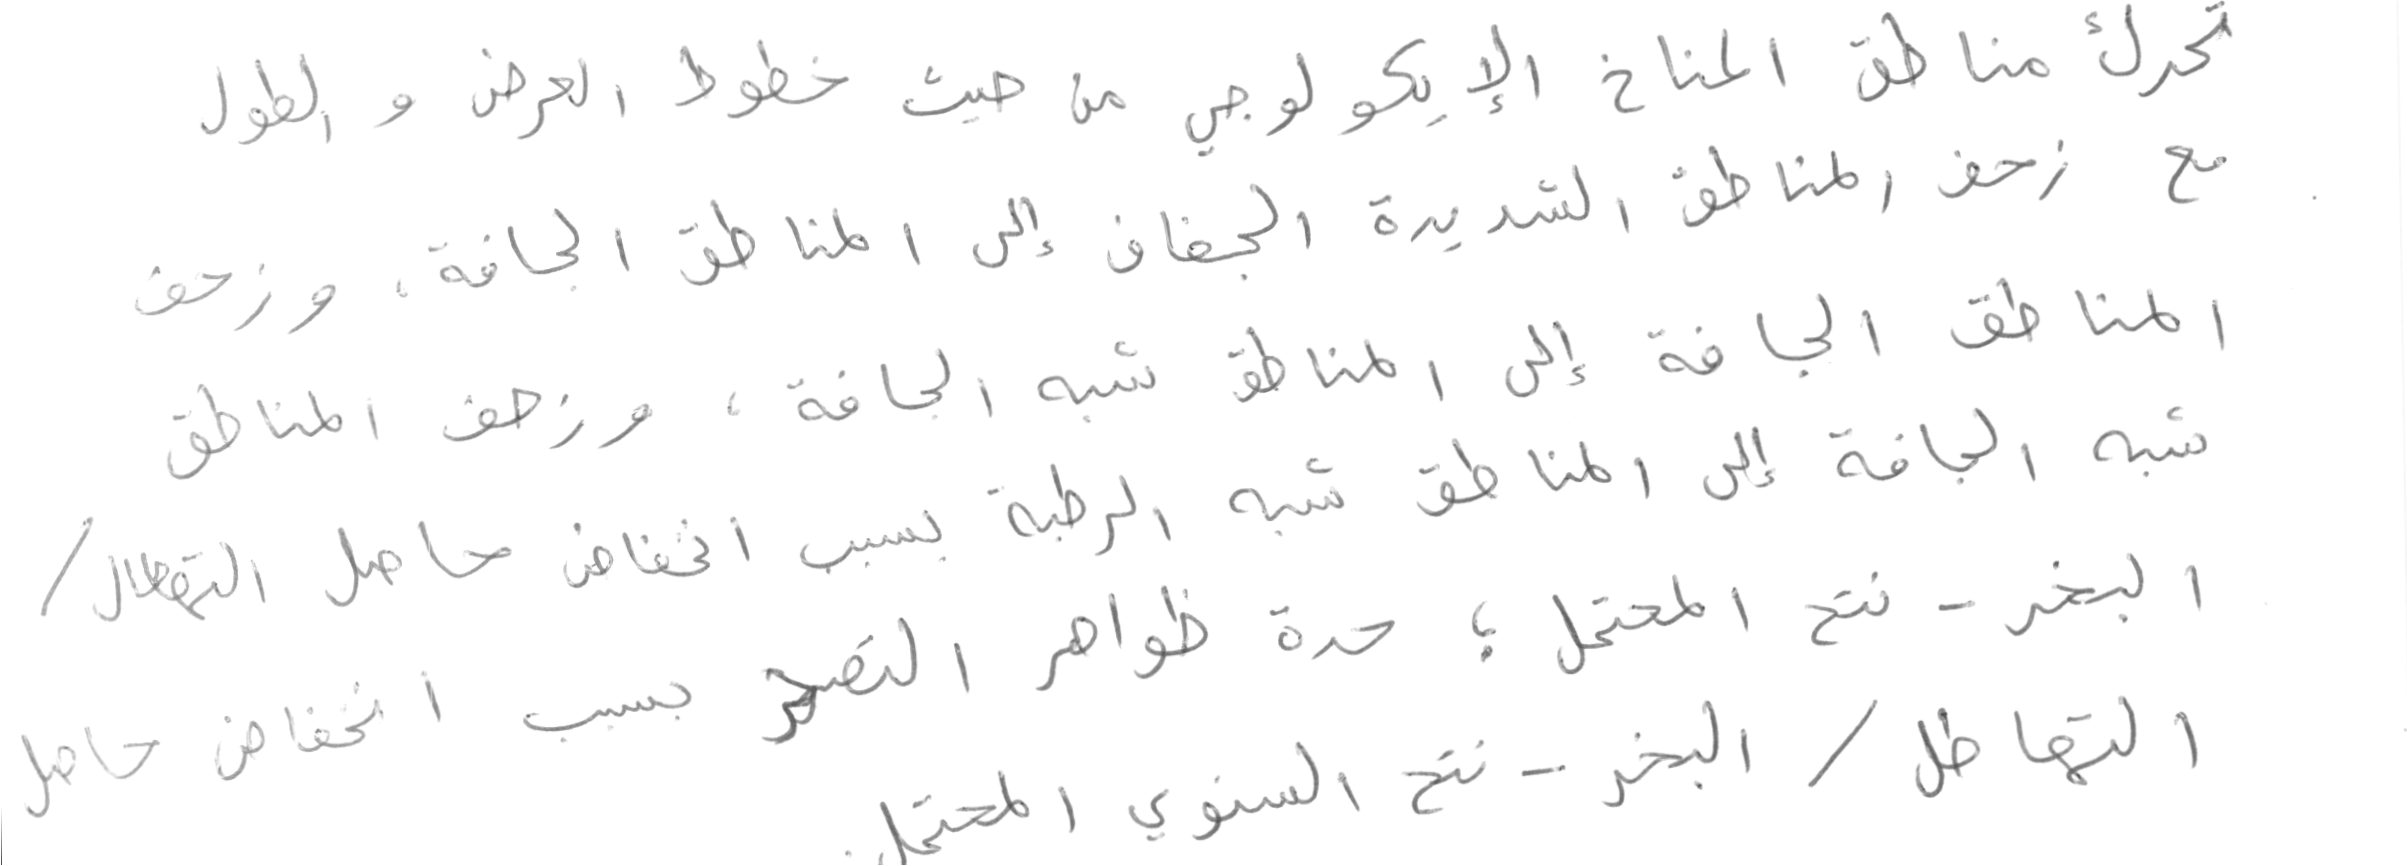 تحرك مناطق المناخ الإيكولوجي من حيث خطوط العرض و الطول
مع زحف المناطق الشديدة الجفاف إلى المناطق الجافة، وزحف
المناطق الجافة إلى المناطق شبه الجافة، وزحف المناطق
شبه الجافة إلى المناطق شبه الرطبة بسبب انخفاض حاصل التهطال/
البخر - نتح المحتمل؛ حدة ظواهر التصحر بسبب انخفاض حاصل
التهاطل/ البخر - نتح السنوي المحتمل.